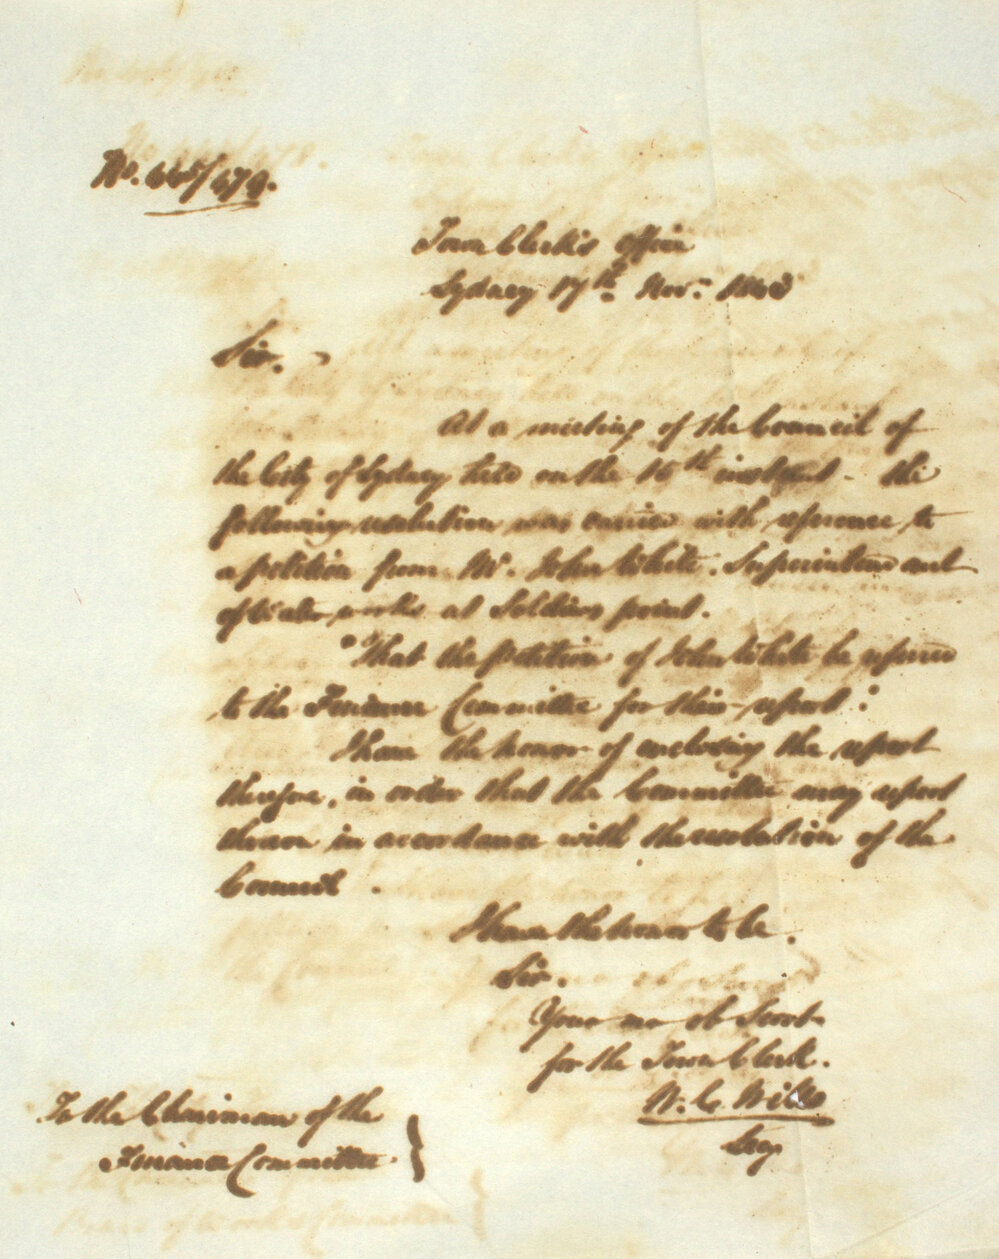 Town Clerk's Office
Sydney 17th Nov.
Sir,
At a meeting of the Council of
the City of Sydney held on the 15th instant - the
following resolution was carried with reference to
a petition from Mr. John White. Superintendent
of Water works at Soldiers point.
"That the petition of John White be referred
to the Finance Committee for their report".
I have the honor of enclosing the report
therefore, in order that the Committee may report
thereon in accordance with the resolution of the
Council.
I have the honor to be.
Sir.
Your mo ob Servt
for the Town Clerk.
W. C. Wills
Secy
To the Chairman of the
Finance Committee